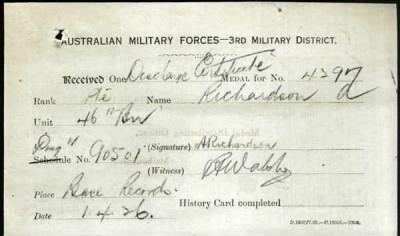 AUSTRALIAN MILITARY FORCES—3RD MILITARY DISTRICT.
Received One Discharge Certificate MEDAL for No. 4297
Rank Pte Name Richardson A
Unit 46th Bn
Schedule No. 90501 (Signature) A Richardson
(Witness)
Place Base Records
Date 1.4.26. History Card completed